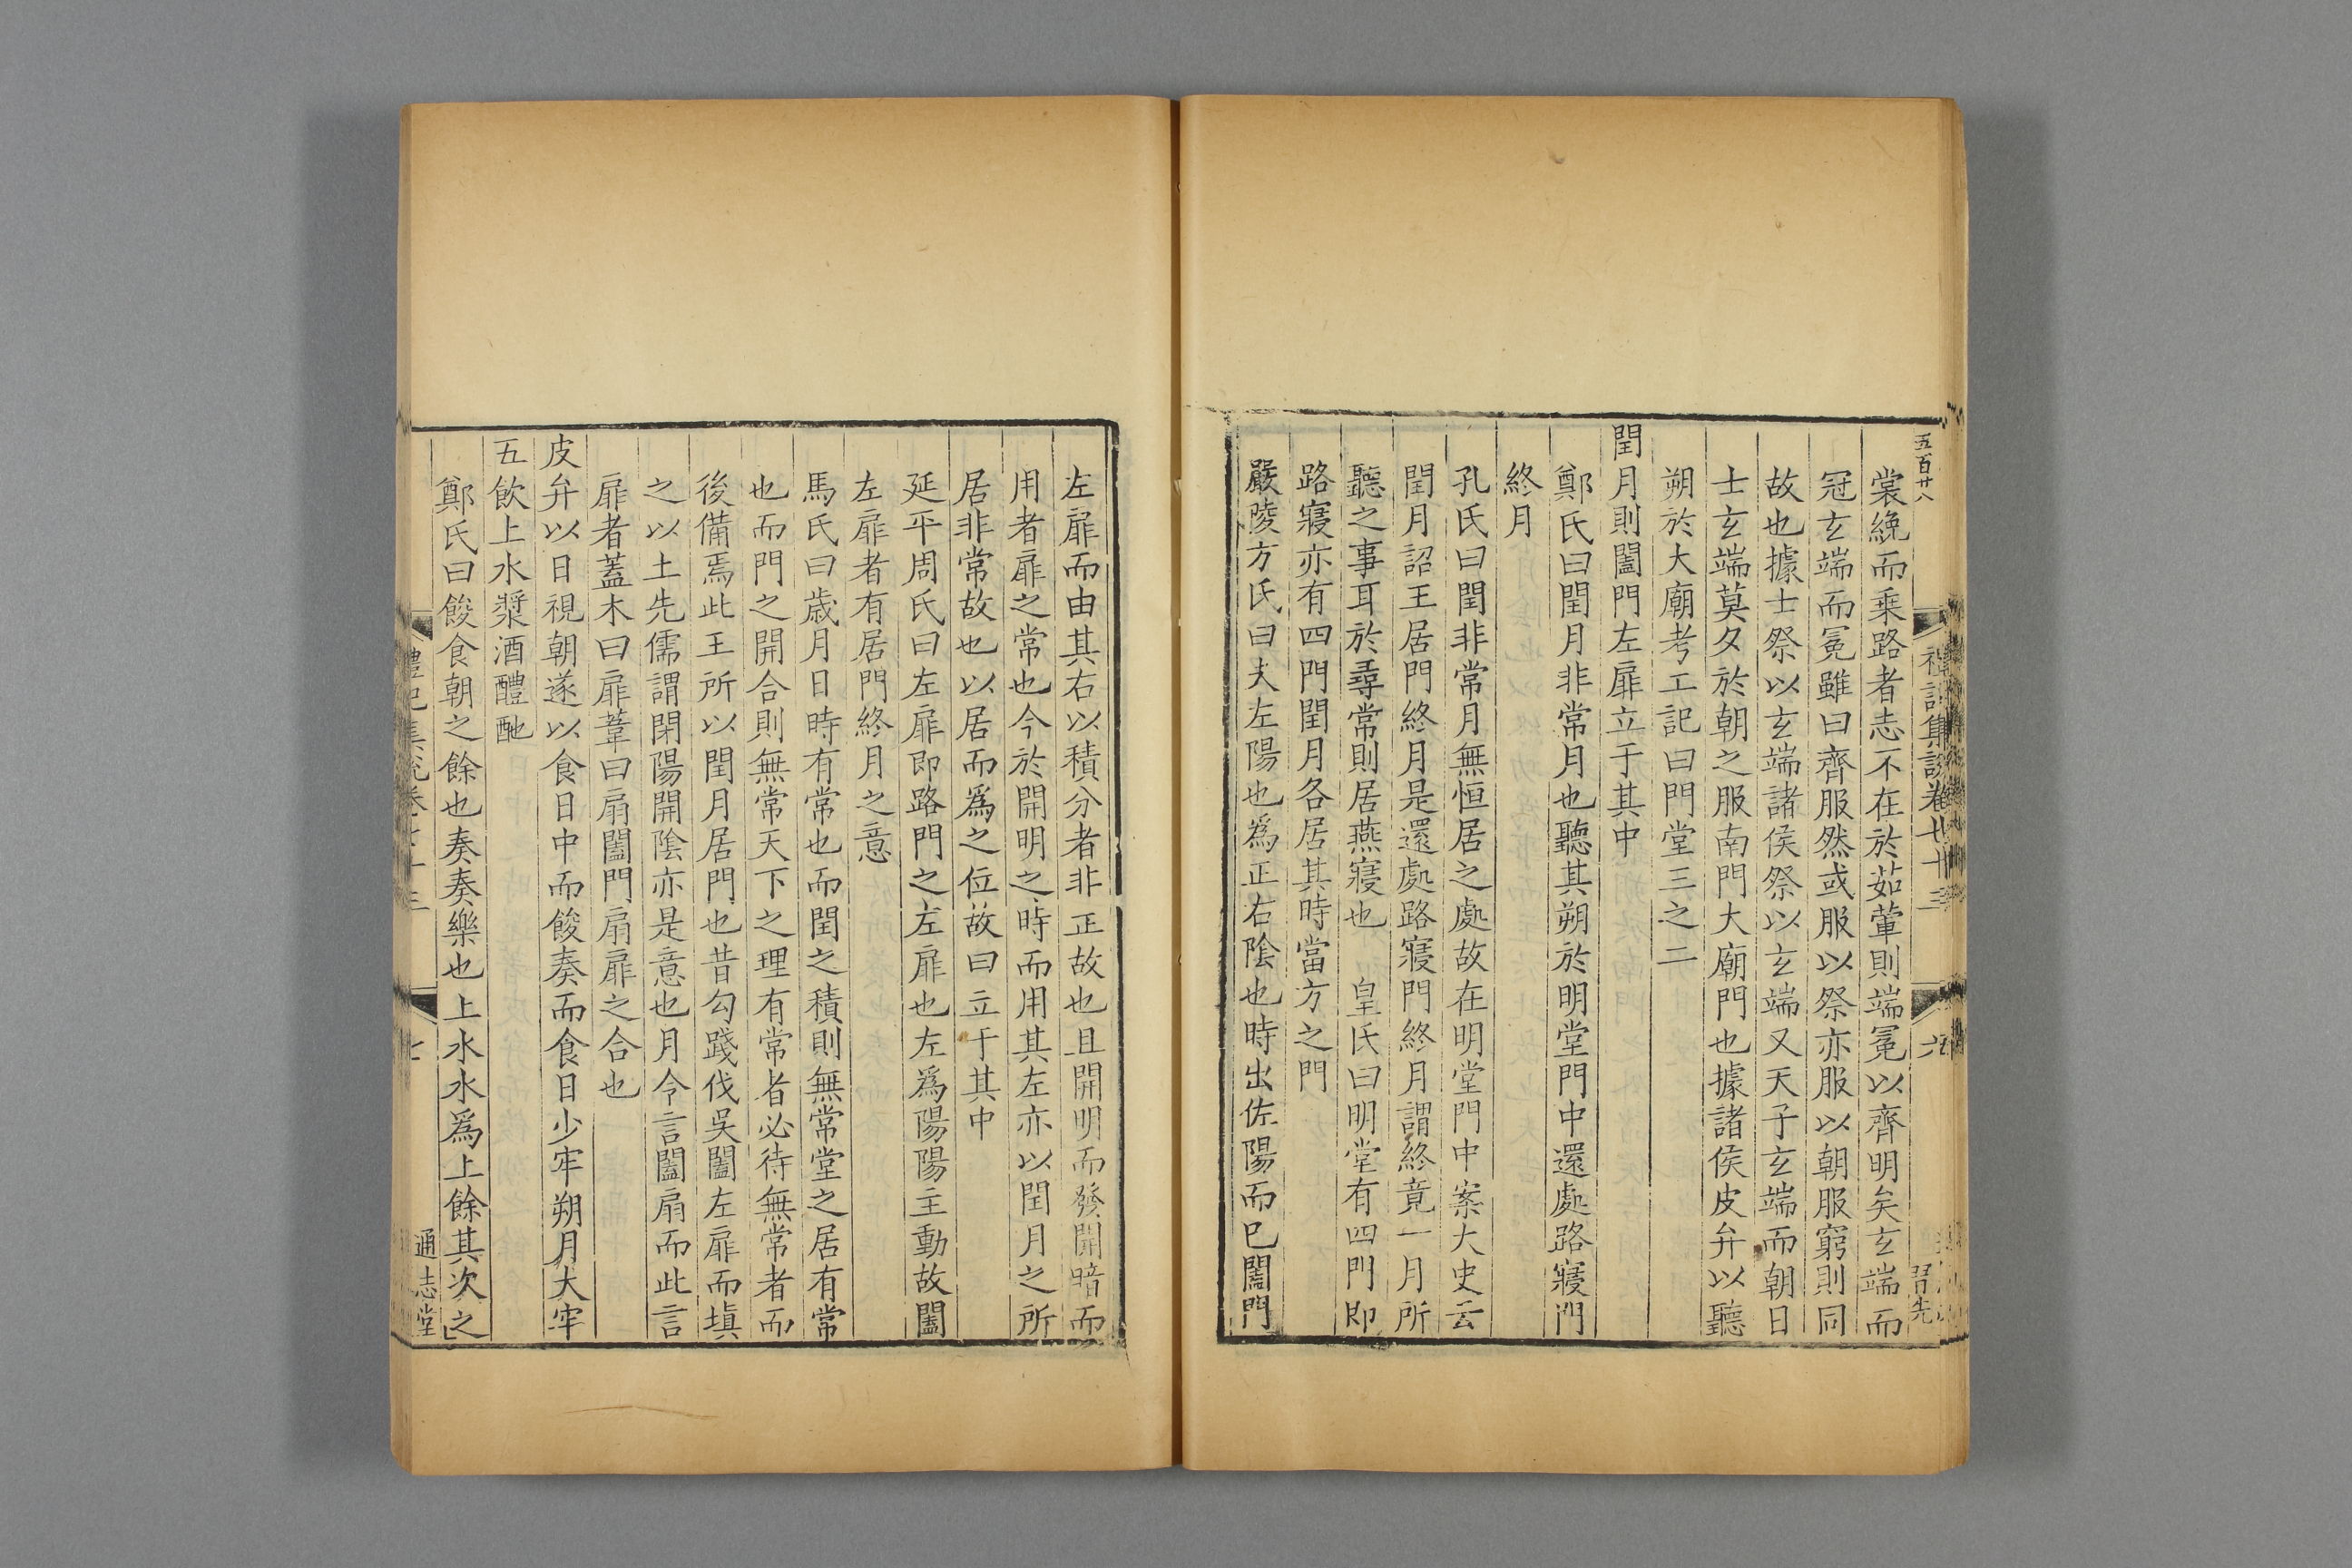 五百廿八
裳絻而乗路者志不在於茹葷則端冕以齊明矣玄端而
冠玄端而冕雖曰齊服然或服以祭亦服以朝服窮則同
故也據士祭以玄端諸侯祭以玄端又天子玄端而朝日
士玄端莫夕於朝之服南門大廟門也據諸侯皮弁以聽
朔於大廟考工記曰門堂三之二
閏月則闔門左扉立于其中
鄭氏曰閏月非常月也聽其朔於明堂門中還處路寢門
終月
孔氏曰閏非常月無恒居之處故在明堂門中案大史云
閏月詔王居門終月是還處路寢門終月謂終竟一月所
聽之事耳於尋常則居燕寢也 皇氏曰明堂有四門即
路寢亦有四門閏月各居其時當方之門
嚴陵方氏曰夫左陽也爲正右陰也時出佐陽而已闔門
左扉而由其右以積分者非正故也且開明而發開暗而
用者扉之常也今於開明之時而用其左亦以閏月之所
居非常故也以居而爲之位故曰立于其中
延平周氏曰左扉即路門之左扉也左爲陽陽主動故闔
左扉者有居門終月之意
馬氏曰歲月日時有常也而閏之積則無常堂之居有常
也而門之開合則無常天下之理有常者必待無常者而
後備焉此王所以閏月居門也昔勾踐伐吳闔左扉而塡
之以土先儒謂閉陽開陰亦是意也月令言闔扇而此言
扉者蓋木曰扉葦曰扇闔門扇扉之合也
皮弁以日視朝遂以食日中而餕奏而食日少牢朔月大牢
五飲上水漿酒醴酏
鄭氏曰餕食朝之餘也奏奏樂也上水水爲上餘其次之
通志堂